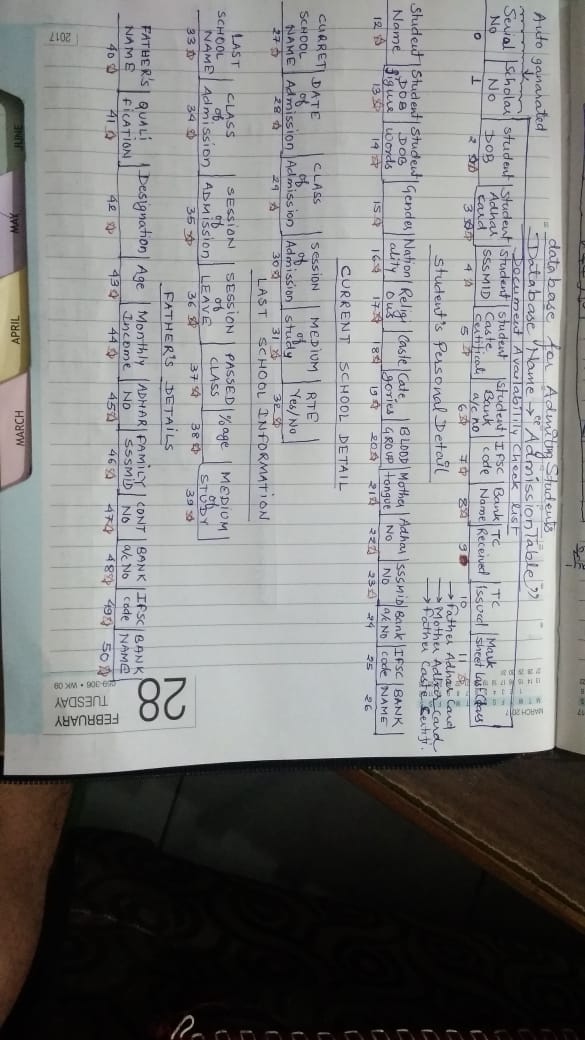 database for Admiting Students
Database Name → "Admission Table"
Document Availability Check list
Auto ganarated
Serial No | Scholar No | Student DOB | Student Adhar card | Student SSSMID | Student Caste certificat | Student Bank a/c no | IFSC code | Bank Name | TC Received | TC Issued | Mark sheet
0 1 2 3 4 5 6 7 8 9 10 11
→ Father Adhar Card
→ Mother Adhar Card
→ Father Caste Certifi.
Student's Personal Detail
Student Name | Student DOB figure | Student DOB words | Gender | Nation ality | Relig ious | Caste | Cate gories | BLOOD GROUP | Mother tongue | Adhar No | SSSMID No | Bank a/c No | IFSC code | BANK NAME
12 13 14 15 16 17 18 19 20 21 22 23 24 25 26
CURRENT SCHOOL DETAIL
CURRET SCHOOL NAME | DATE of Admission | CLASS of Admission | SESSION of Admission | MEDIUM of study | RTE Yes/No
27 28 29 30 31 32
LAST SCHOOL INFORMATION
LAST SCHOOL NAME | CLASS of Admission | SESSION of ADMISSION | SESSION LEAVE | PASSED CLASS | %age | MEDIUM of STUDY
33 34 35 36 37 38 39
FATHER'S DETAILS
FATHER'S NAME | QUALI FICATION | Designation | Age | Monthly Income | ADHAR NO | FAMILY SSSMID | CONT NO | BANK a/c No | IFSC code | BANK NAME
40 41 42 43 44 45 46 47 48 49 50
2017
28
FEBRUARY
TUESDAY
059-306 • WK 09
MARCH 2017
MARCH
APRIL
MAY
JUNE